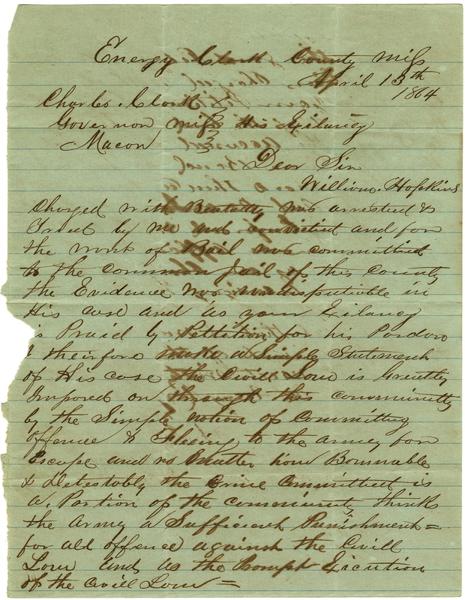 Energy Clark County Miss
April 13th
1864
Charles. Clark
Governor Miss His Exilancy
Macon
Dear Sir
William. Hopkins
Charged with was arrested &
by me and convicted and for
the want of Bail was committed
to the common jail of this County
the Evidence was undisputiable in
His case and as your Exilancy
is Praid by Pettition for his Pardon
I theirfore make a Simple Statement
of His case the Civill Law is Greatly
imposed on through this community
by the Simple notion of Committing
offence & Fleeing to the army for
Escape and no matter how Bominable
& Detestably the Crime Committed is
a. Portion of the community thinks
the Army a Sufficient Punishment =
for all offence against the Civill
Law and as the Prompt Execution
of the Civill Law =